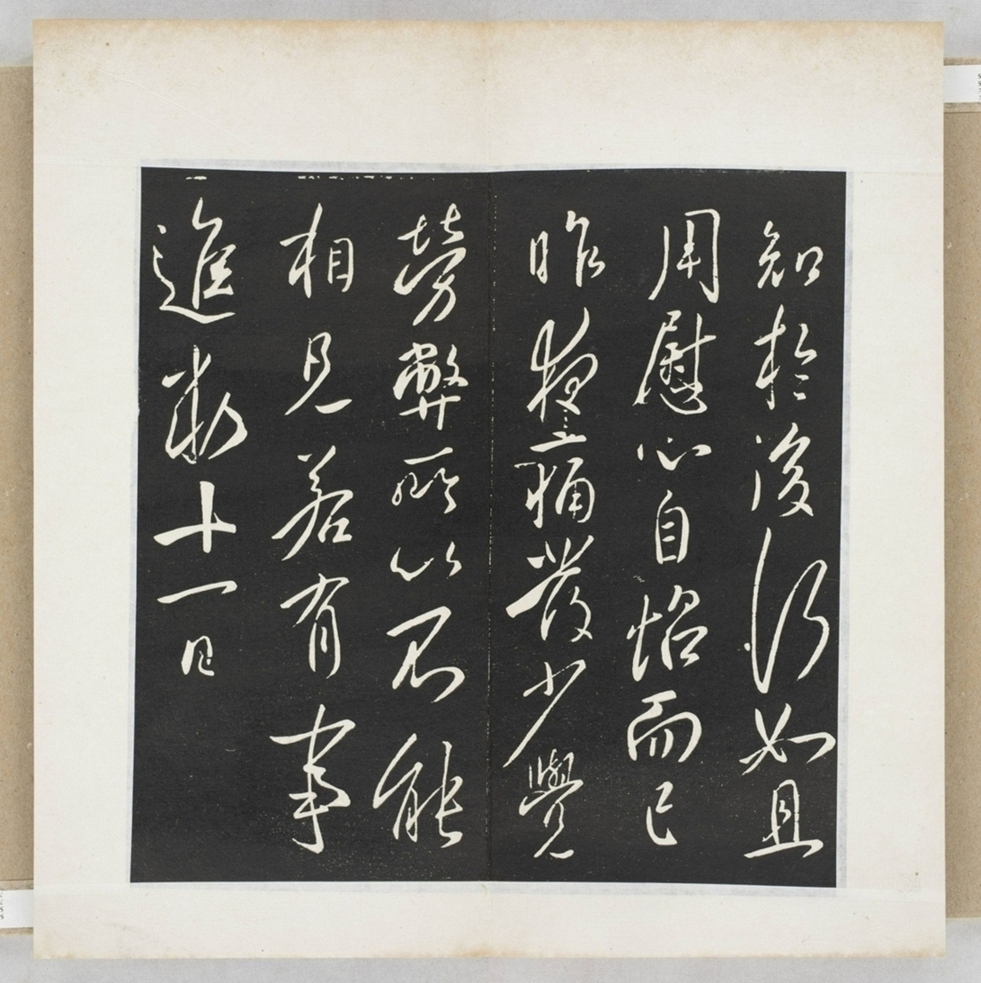 知於後何如且
用慰心自怡而已
昨夜痛發少覺
勞弊所以不能
相見若有事
進數十一日